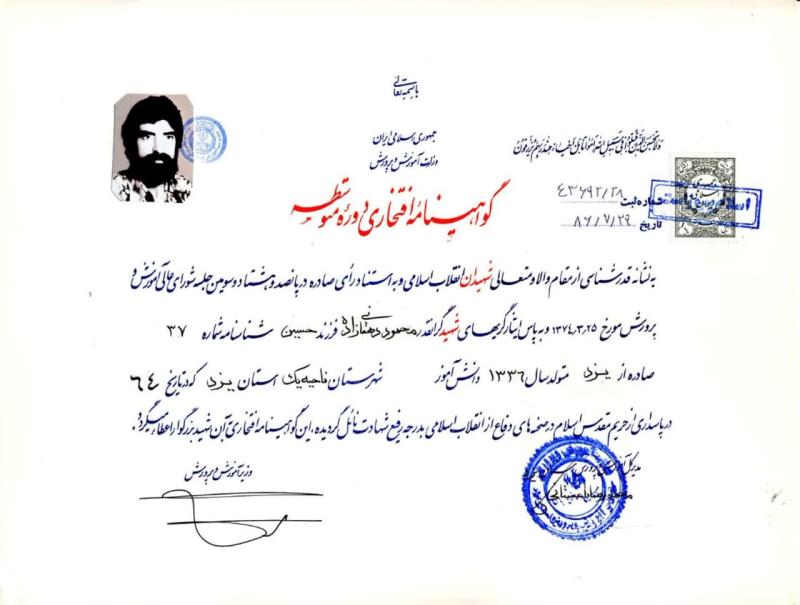 باسمه تعالی
جمهوری اسلامی ایران
وزارت آموزش و پرورش
ولا تحسبن الذین قتلوا فی سبیل الله امواتا بل احیاء عند ربهم یرزقون
گواهینامهٔ افتخاری دورهٔ متوسطه
شماره ثبت ۴۳۶۹۲/۲۸
تاریخ ۸۶/۷/۲۹
به نشانه قدرشناسی از مقام والا و متعالی شهیدان انقلاب اسلامی و به استناد رأی صادره در پانصد و هشتاد و سومین جلسه شورای عالی آموزش و
پرورش مورخ ۱۳۷۴/۳/۲۵ و به پاس ایثارگریهای شهید گرانقدر محمود دهقانی زاده فرزند حسین شناسنامه شماره ۳۷
صادره از یزد متولد سال ۱۳۳۶ دانش آموز شهرستان ناحیه یک استان یزد که در تاریخ ۶۴
در پاسداری از حریم مقدس اسلام در صحنه های دفاع از انقلاب اسلامی بدرجه رفیع شهادت نائل گردیده، این گواهینامه افتخاری به آن شهید بزرگوار اعطا میگردد.
وزیر آموزش و پرورش
مدیر کل آموزش و پرورش